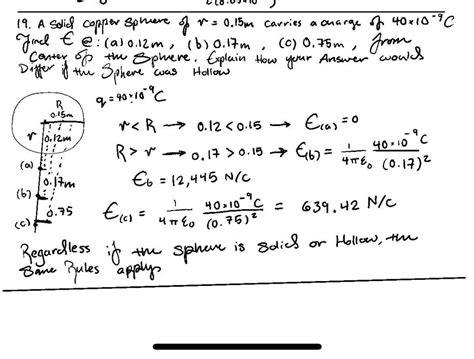 19. A solid copper sphere of r = 0.15m carries a charge of 40×10⁻⁹C
Find E @: (a) 0.12m, (b) 0.17m, (c) 0.75m, from
Center of the Sphere. Explain How your Answer would
Differ if the Sphere was Hollow
R
0.15m
r
0.12m
(a)
0.17m
(b)
0.75
(c)
q = 40×10⁻⁹C
r < R → 0.12 < 0.15 → E(a) = 0
R > r → 0.17 > 0.15 → E(b) = 1/4πε₀ 40×10⁻⁹C/(0.17)²
Eb = 12,445 N/C
E(c) = 1/4πε₀ 40×10⁻⁹C/(0.75)² = 639.42 N/C
Regardless if the sphere is solid or Hollow, the
Same Rules apply